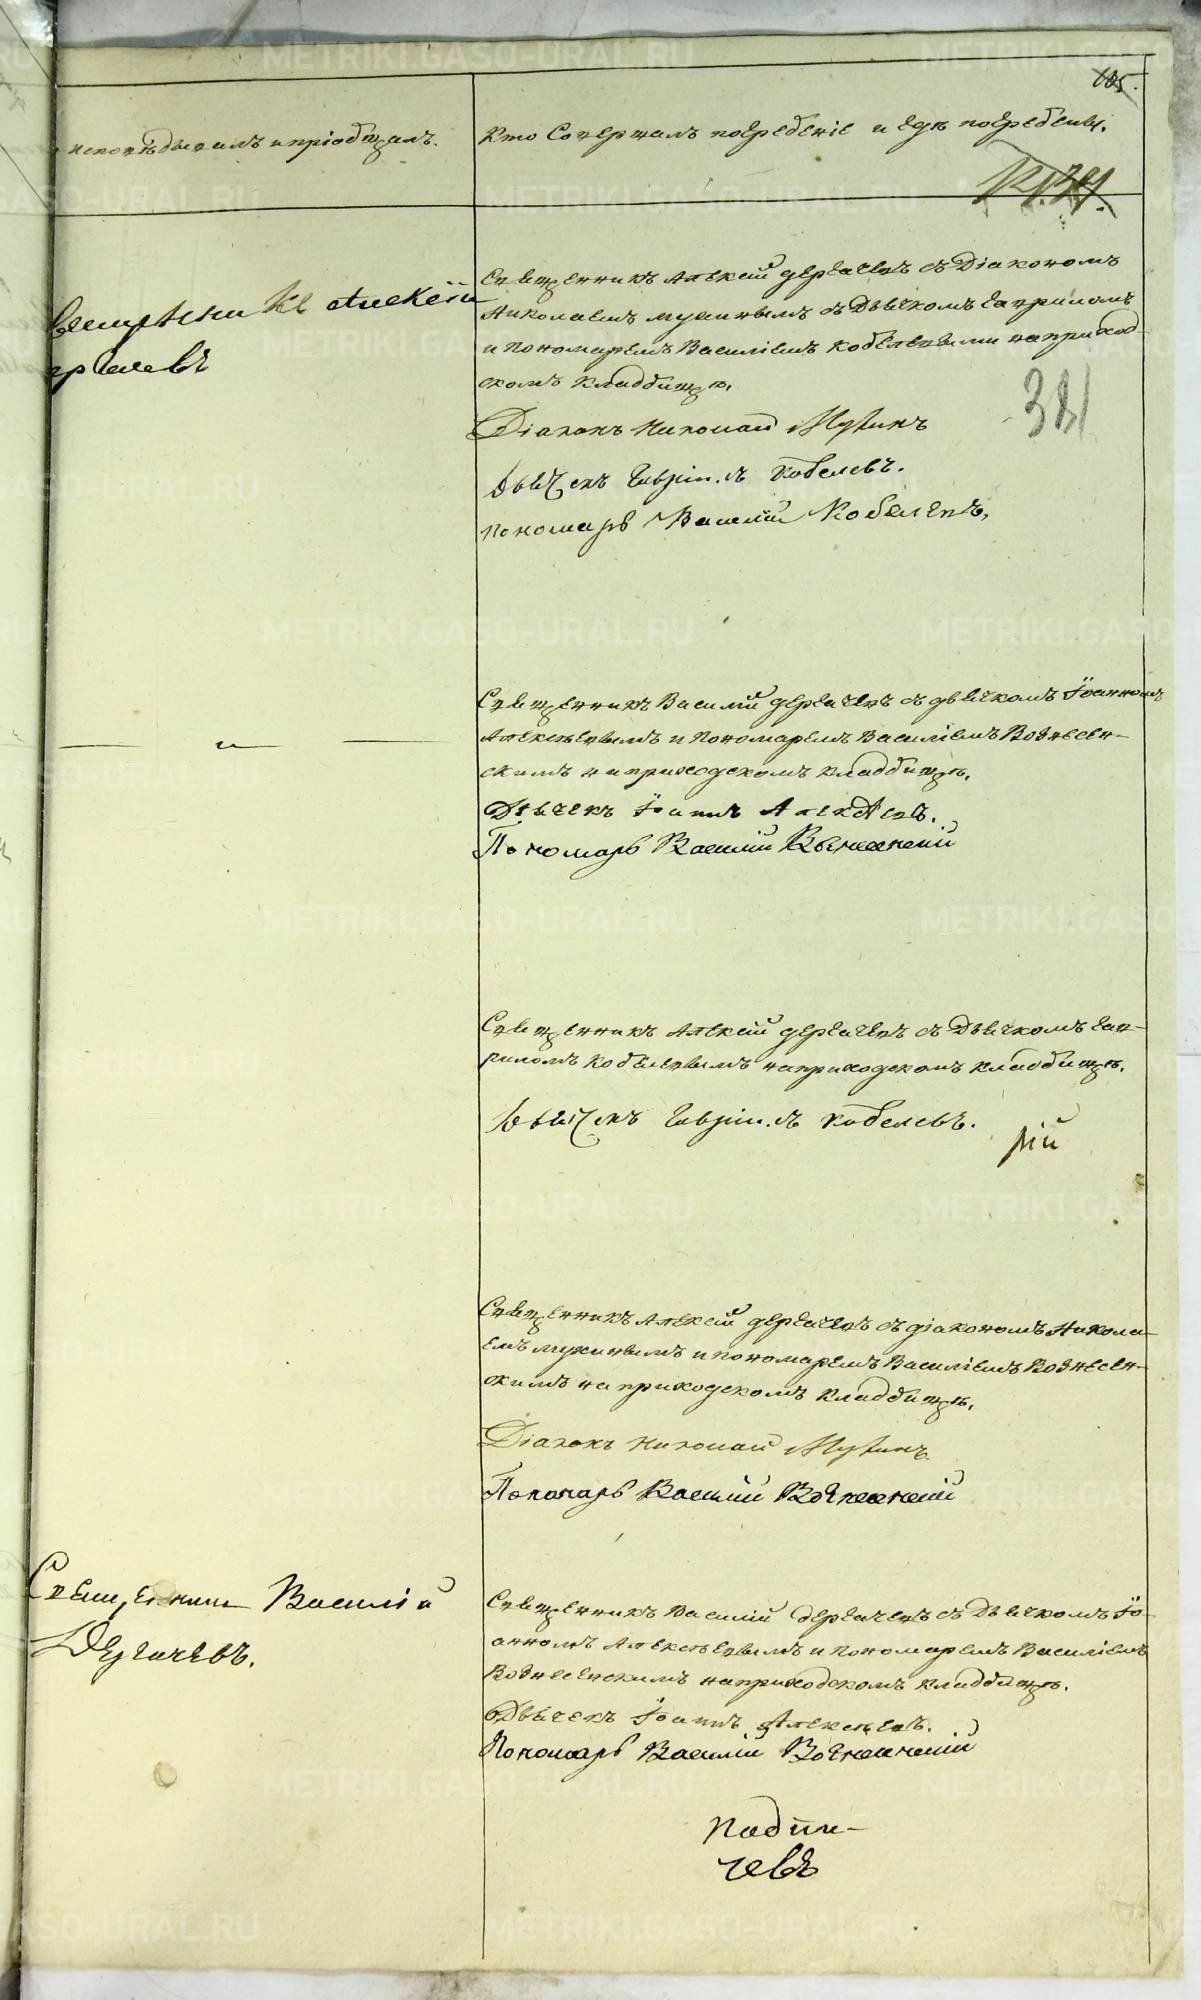 105.
исповѣдывалъ и пріобщалъ.
Кто Совершалъ погребеніе и гдѣ погребены.
Священникъ Алексій
Священникъ Алексій Дергачевъ съ Діакономъ
Николаемъ Мухинымъ съ Дьячкомъ Гавріиломъ
и Пономаремъ Василіемъ Кобелевыми на приход-
скомъ кладбищѣ.
Діаконъ Николай Мухинъ
Дьячекъ Гавріилъ Кобелевъ.
Пономарь Василій Кобелевъ.
— „ —
Священникъ Василій Дергачевъ съ дьячкомъ Іоанномъ
Алексѣевымъ и Пономаремъ Василіемъ Вознесен-
скимъ на приходскомъ кладбищѣ.
Дьячекъ Іоаннъ Алексѣевъ.
Пономарь Василій Вознесенскій
Священникъ Алексій Дергачевъ съ Дьячкомъ Гав-
риломъ Кобелевымъ на приходскомъ кладбищѣ.
Дьячекъ Гавріилъ Кобелевъ.
рій
Священникъ Алексій Дергачевъ съ діакономъ Никола-
емъ Мухинымъ и пономаремъ Василіемъ Вознесен-
скимъ на приходскомъ кладбищѣ.
Діаконъ Николай Мухинъ
Пономарь Василій Вознесенскій
Священникъ Василій
Дергачевъ.
Священникъ Василій Дергачевъ съ Дьячкомъ Іо-
анномъ Алексѣевымъ и Пономаремъ Василіемъ
Вознесенскимъ на приходскомъ кладбищѣ.
Дьячекъ Іоаннъ Алексѣевъ.
Пономарь Василій Вознесенскій
чевъ
METRIKI.GASO-URAL.RU